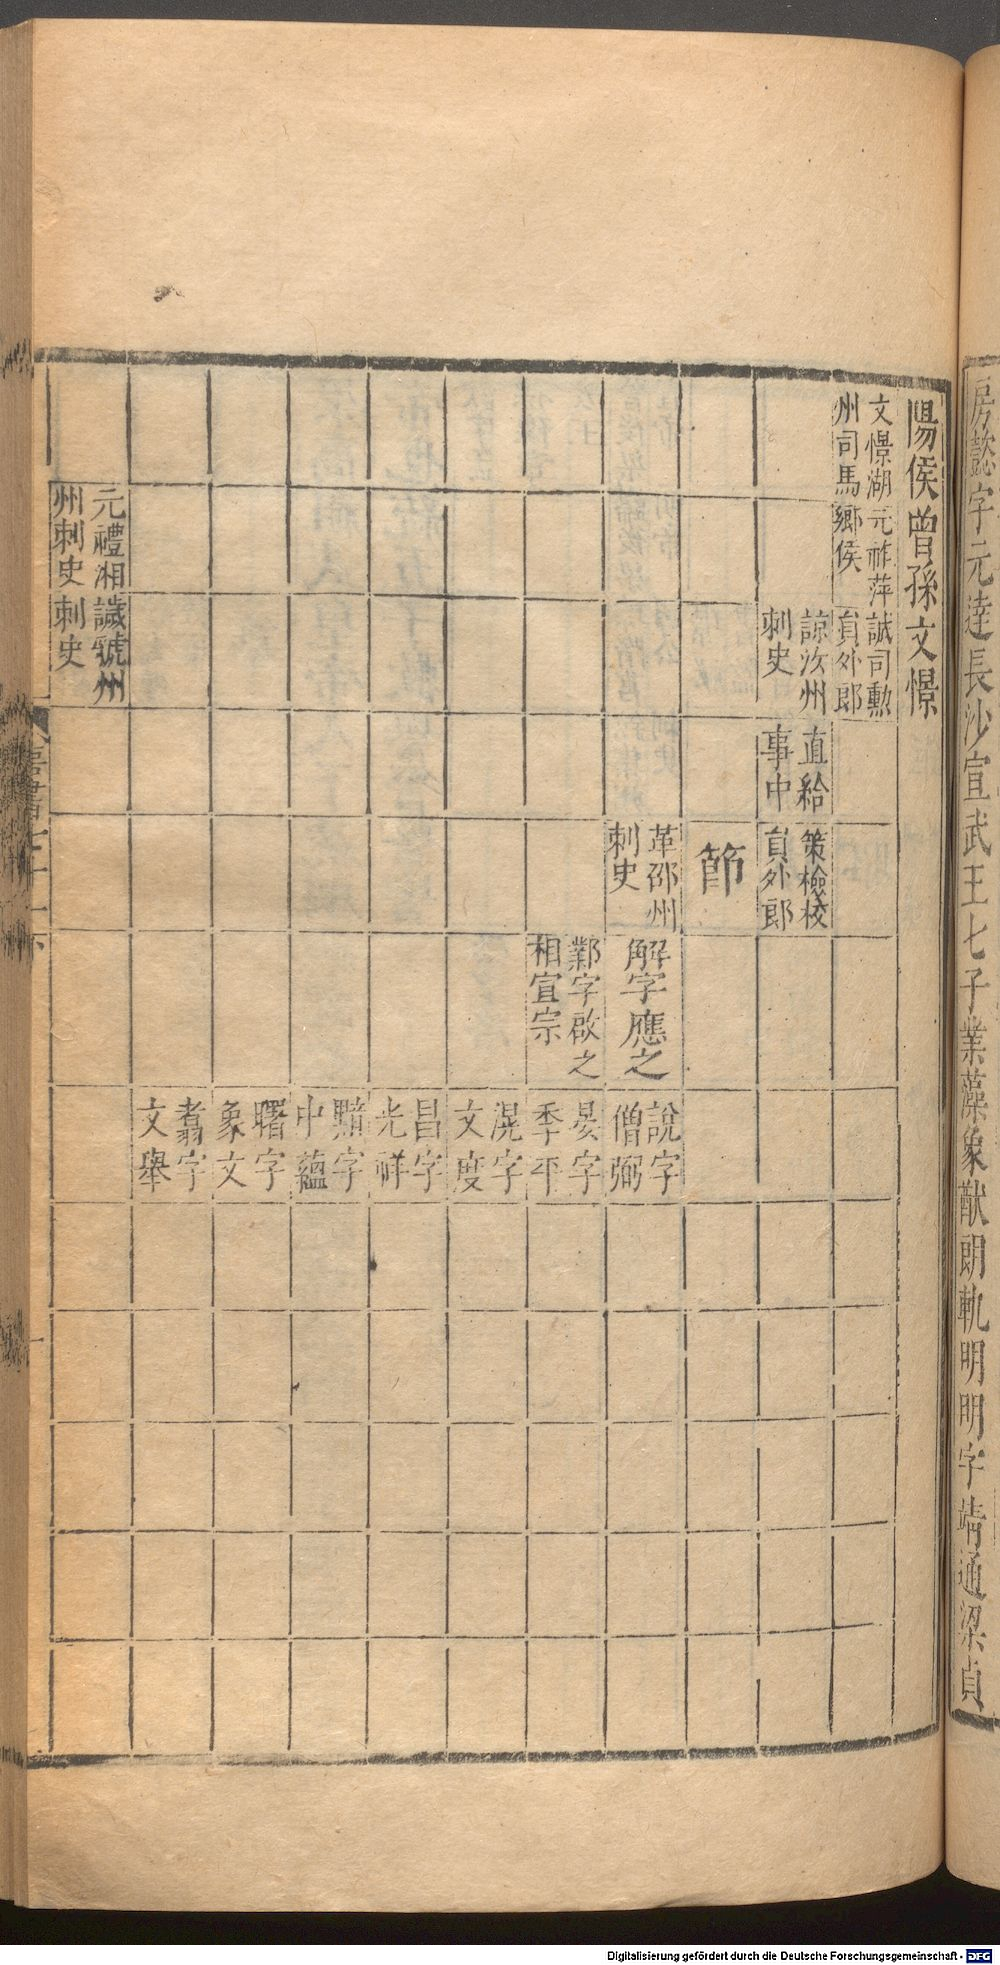 房懿字元達長沙宣武王七子業藻象猷朗軌明明字靖通梁貞
陽侯曾孫文憬
文憬湖
州司馬
元祚萍
鄉侯
誠司勳
員外郎
諒汝州
刺史
直給
事中
策檢校
員外郎
節
革邵州
刺史
解字應之
說字
僧弼
鄴字啟之
相宣宗
晏字
季平
滉字
文度
昌字
光祥
黯字
中蘊
曙字
象文
翥字
文舉
元禮湘
州刺史
誠虢州
刺史
唐書七十一下
Digitalisierung gefördert durch die Deutsche Forschungsgemeinschaft - DFG